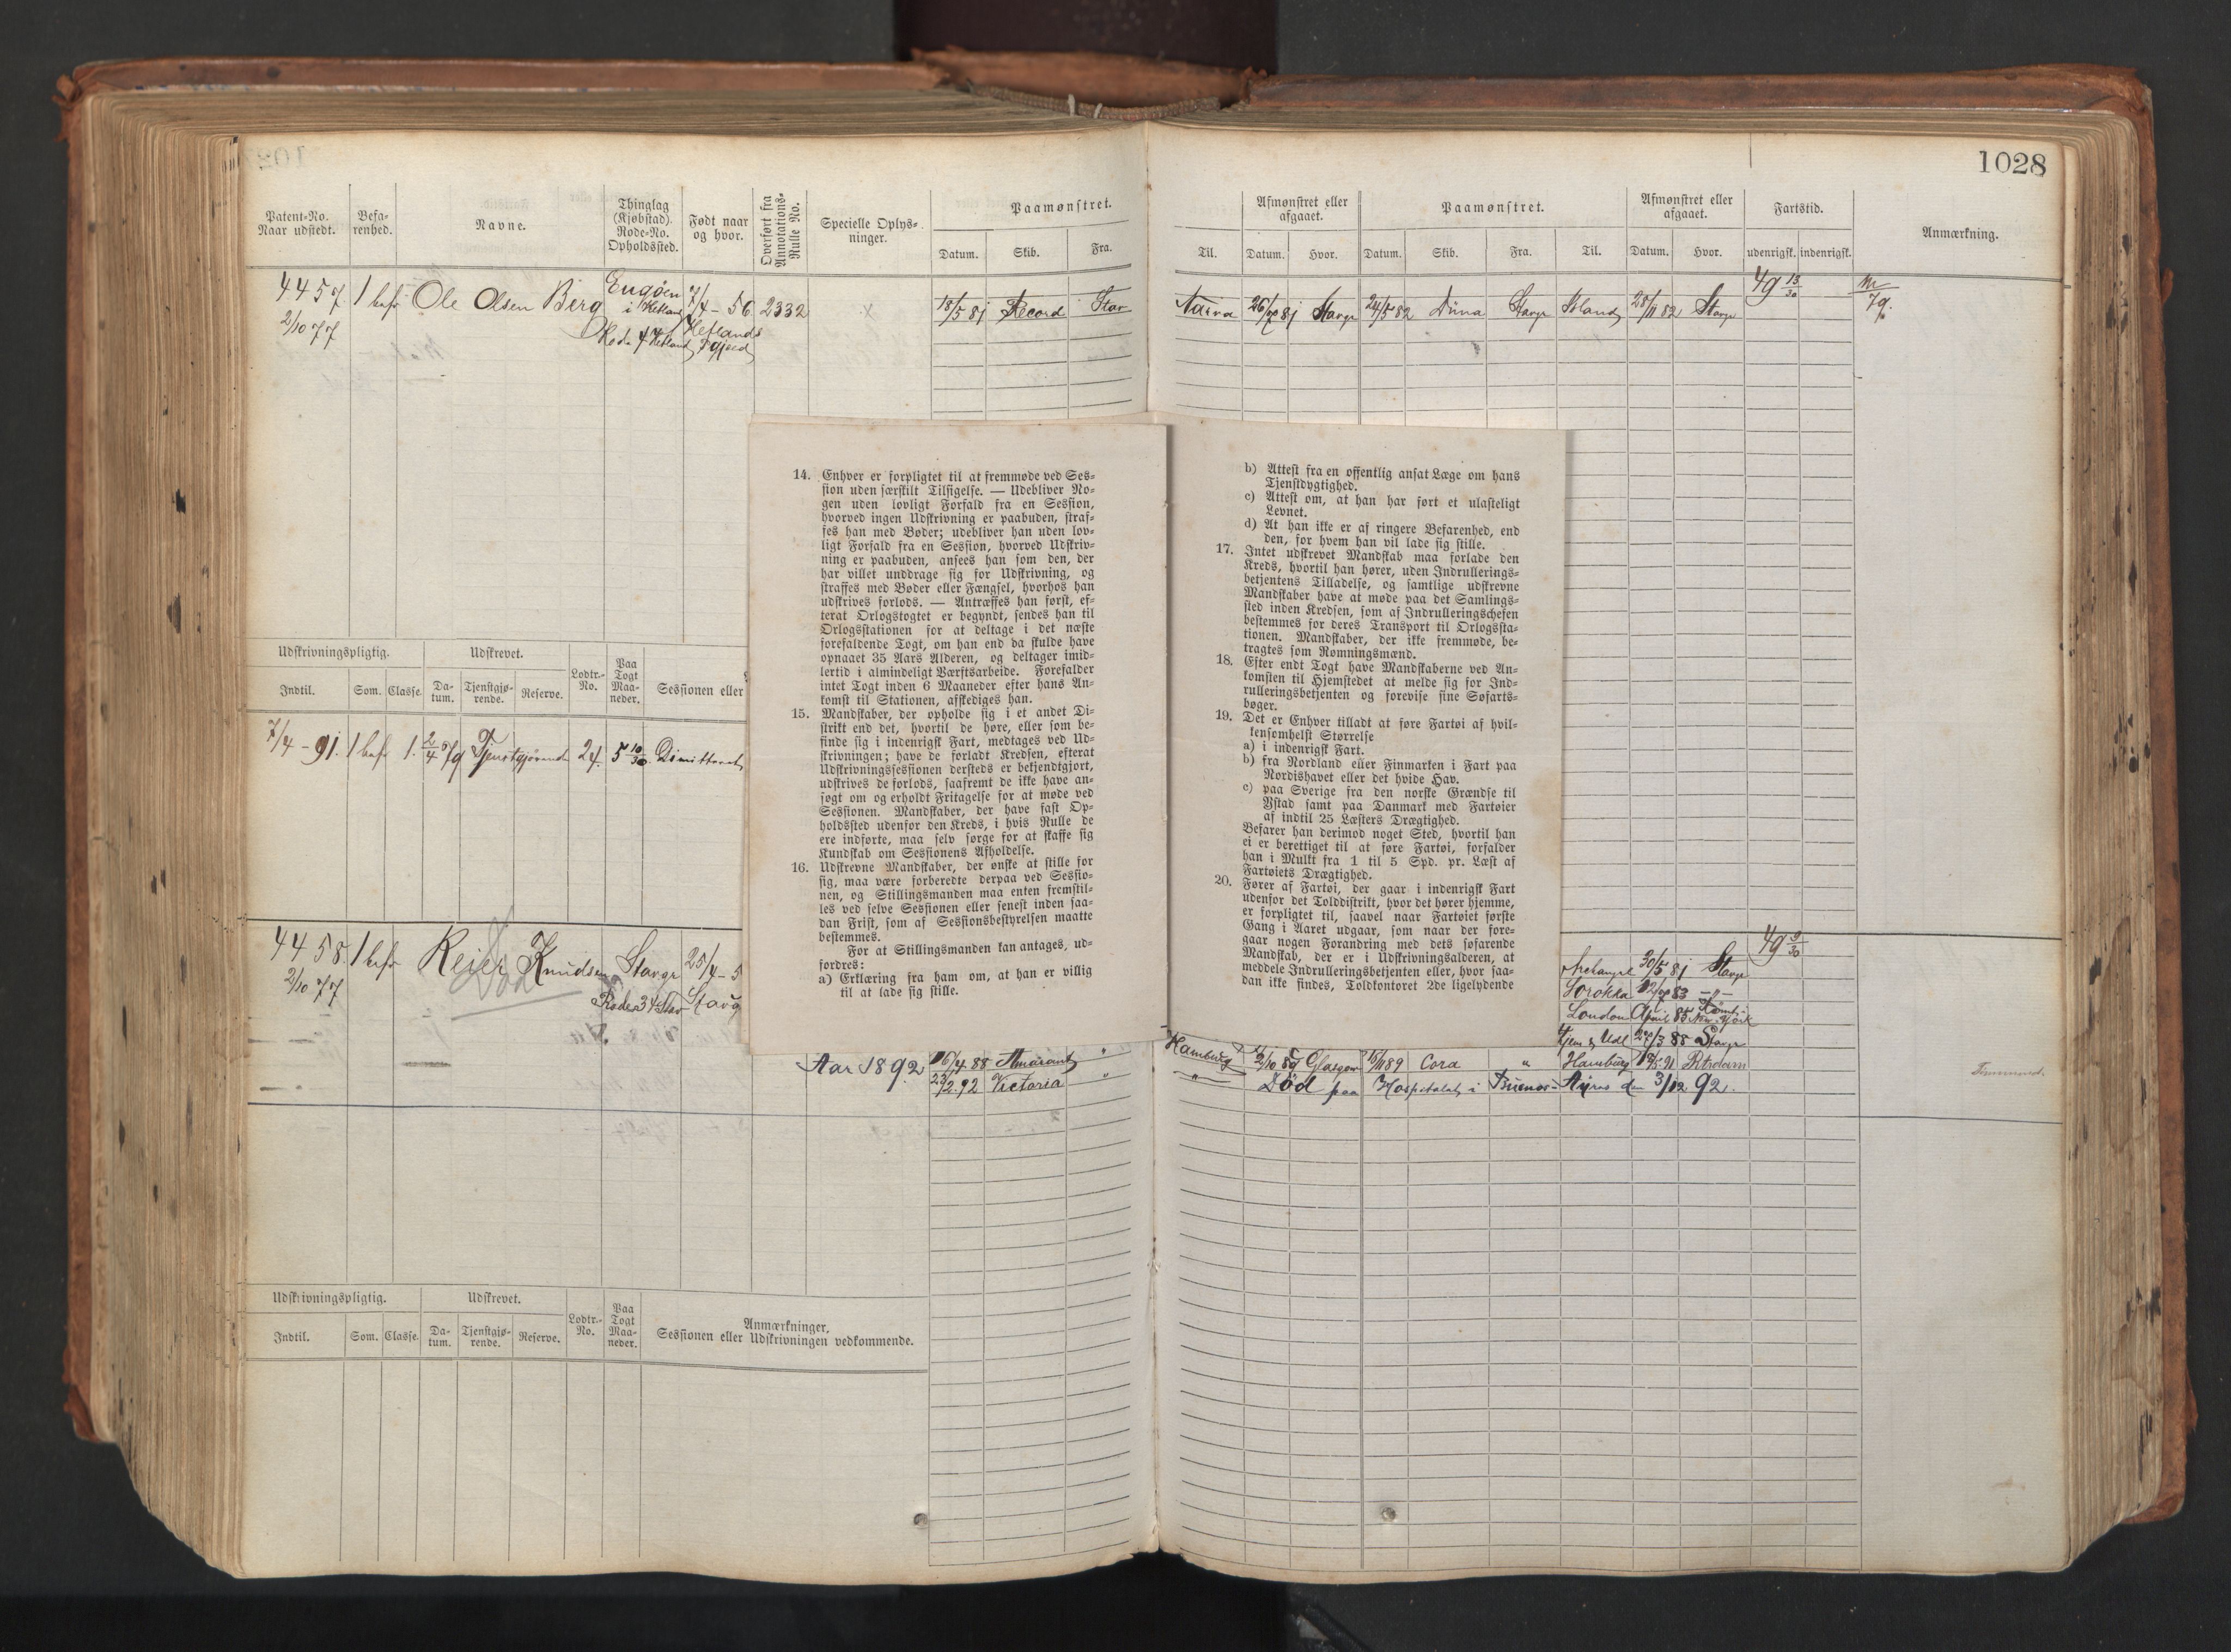 1028
Patent-No. Naar udstedt.
Befa-renhed.
Navne.
Thinglag (Kjøbstad). Rode-No. Opholdssted.
Født naar og hvor.
Overført fra Annotations-Rulle No.
Specielle Oplys-ninger.
Paamønstret.
Datum. Skib. Fra. Til.
Afmønstret eller afgaaet.
Datum. Hvor.
Paamønstret.
Datum. Skib. Fra. Til.
Afmønstret eller afgaaet.
Datum. Hvor.
Fartstid.
udenrigsk. indenrigsk.
Anmærkning.
4457 1 bef. Ole Olsen Berg Engøen 7/4-56 2332 18/5 81 Record Stav
2/10 77 i Hetland Hetlands
Rode 4 Hetland
26/9 81 Stavgr 24/5 82 Düna Stavgr Island 28/11 82 Stavgr 49 13/30
79.
Udskrivningspligtig. Udskrevet. Lodtr.-No. Paa Togt Maa-neder. Sessionen eller
Indtil. Som. Classe. Da-tum. Tjenstgjø-rende. Reserve.
7/4-91. 1 bef. 1. 2/4 79 Tjenstgjørende 24. 5 10/30 Dimitteret
14. Enhver er forpligtet til at fremmøde ved Ses-
sion uden særskilt Tilsigelse. — Udebliver No-
gen uden lovligt Forfald fra en Session,
hvorved ingen Udskrivning er paabuden, straf-
fes han med Bøder; udebliver han uden lov-
ligt Forfald fra en Session, hvorved Udskriv-
ning er paabuden, ansees han som den, der
har villet unddrage sig for Udskrivning, og
straffes med Bøder eller Fængsel, hvorhos han
udskrives forlods. — Antræffes han først, ef-
terat Orlogstogtet er begyndt, sendes han til
Orlogsstationen for at deltage i det næste
forefaldende Togt, om han end da skulde have
opnaaet 35 Aars Alderen, og deltager imid-
lertid i almindeligt Værftsarbeide. Forefalder
intet Togt inden 6 Maaneder efter hans An-
komst til Stationen, afskediges han.
15. Mandskaber, der opholde sig i et andet Di-
strikt end det, hvortil de høre, eller som be-
finde sig i indenrigsk Fart, medtages ved Ud-
skrivningen; have de forladt Kredsen, efterat
Udskrivningssessionen dersteds er bekjendtgjort,
udskrives de forlods, saafremt de ikke have an-
søgt om og erholdt Fritagelse for at møde ved
Sessionen. Mandskaber, der have fast Op-
holdssted udenfor den Kreds, i hvis Rulle de
ere indførte, maa selv sørge for at skaffe sig
Kundskab om Sessionens Afholdelse.
16. Udskrevne Mandskaber, der ønske at stille for
sig, maa være forberedte derpaa ved Sessio-
nen, og Stillingsmanden maa enten fremstil-
les ved selve Sessionen eller senest inden saa-
dan Frist, som af Sessionsbestyrelsen maatte
bestemmes.
For at Stillingsmanden kan antages, ud-
fordres:
a) Erklæring fra ham om, at han er villig
til at lade sig stille.
b) Attest fra en offentlig ansat Læge om hans
Tjenstdygtighed.
c) Attest om, at han har ført et ulasteligt
Levnet.
d) At han ikke er af ringere Befarenhed, end
den, for hvem han vil lade sig stille.
17. Intet udskrevet Mandskab maa forlade den
Kreds, hvortil han hører, uden Indrullerings-
betjentens Tilladelse, og samtlige udskrevne
Mandskaber have at møde paa det Samlings-
sted inden Kredsen, som af Indrulleringschefen
bestemmes for deres Transport til Orlogssta-
tionen. Mandskaber, der ikke fremmøde, be-
tragtes som Rømningsmænd.
18. Efter endt Togt have Mandskaberne ved An-
komsten til Hjemstedet at melde sig for Ind-
rulleringsbetjenten og forevise sine Søfarts-
bøger.
19. Det er Enhver tilladt at føre Fartøi af hvil-
kensomhelst Størrelse
a) i indenrigsk Fart.
b) fra Nordland eller Finmarken i Fart paa
Nordishavet eller det hvide Hav.
c) paa Sverige fra den norske Grændse til
Ystad samt paa Danmark med Fartøier
af indtil 25 Læsters Drægtighed.
Befarer han derimod noget Sted, hvortil han
ei er berettiget til at føre Fartøi, forfalder
han i Mulkt fra 1 til 5 Spd. pr. Læst af
Fartøiets Drægtighed.
20. Fører af Fartøi, der gaar i indenrigsk Fart
udenfor det Tolddistrikt, hvor det hører hjemme,
er forpligtet til, saavel naar Fartøiet første
Gang i Aaret udgaar, som naar der fore-
gaar nogen Forandring med dets søfarende
Mandskab, der er i Udskrivningsalderen, at
meddele Indrulleringsbetjenten eller, hvor saa-
dan ikke findes, Toldkontoret 2de ligelydende
4458. 1 bef. Reier Knudsen Stavgr 25/4-5
2/10 77 Død Rode 34 Stav Stavg
49 9/30
Archangel 30/5 81 Stavgr
Sorokka 12/9 83 —"—
London April 85 Rømt New York
Hjem fr Udl 29/3 88 Stavgr
Aar 1892 16/4 88 Amarant " Hamburg 2/10 89 Glasgow 15/11 89 Cora " Hamburg
23/2 92 Victoria " " Død paa Hospitalet i Buenos-Ayres den 3/12 92.
Udskrivningspligtig. Udskrevet. Lodtr.-No. Paa Togt Maa-neder. Anmærkninger, Sessionen eller Udskrivningen vedkommende.
Indtil. Som. Classe. Da-tum. Tjenstgjø-rende. Reserve.